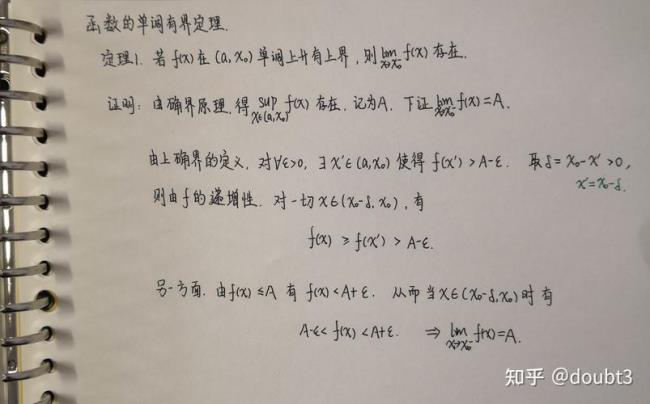 函数的单调有界定理.
定理1. 若 f(x) 在 (a, x₀) 单调上升有上界, 则 lim_{x→x₀⁻} f(x) 存在.
证明: 由确界原理, 得 sup_{x∈(a,x₀)} f(x) 存在. 记为A. 下证 lim_{x→x₀⁻} f(x)=A.
由上确界的定义, 对∀ε>0, ∃x'∈(a,x₀) 使得 f(x')>A-ε. 取 δ=x₀-x'>0,
x'=x₀-δ.
则由f的递增性. 对一切 x∈(x₀-δ, x₀), 有
f(x) ≥ f(x') > A-ε.
另一方面. 由f(x)≤A 有 f(x)<A+ε. 从而当 x∈(x₀-δ,x₀)时有
A-ε< f(x) <A+ε. ⇒ lim_{x→x₀⁻} f(x)=A.
知乎 @doubt3